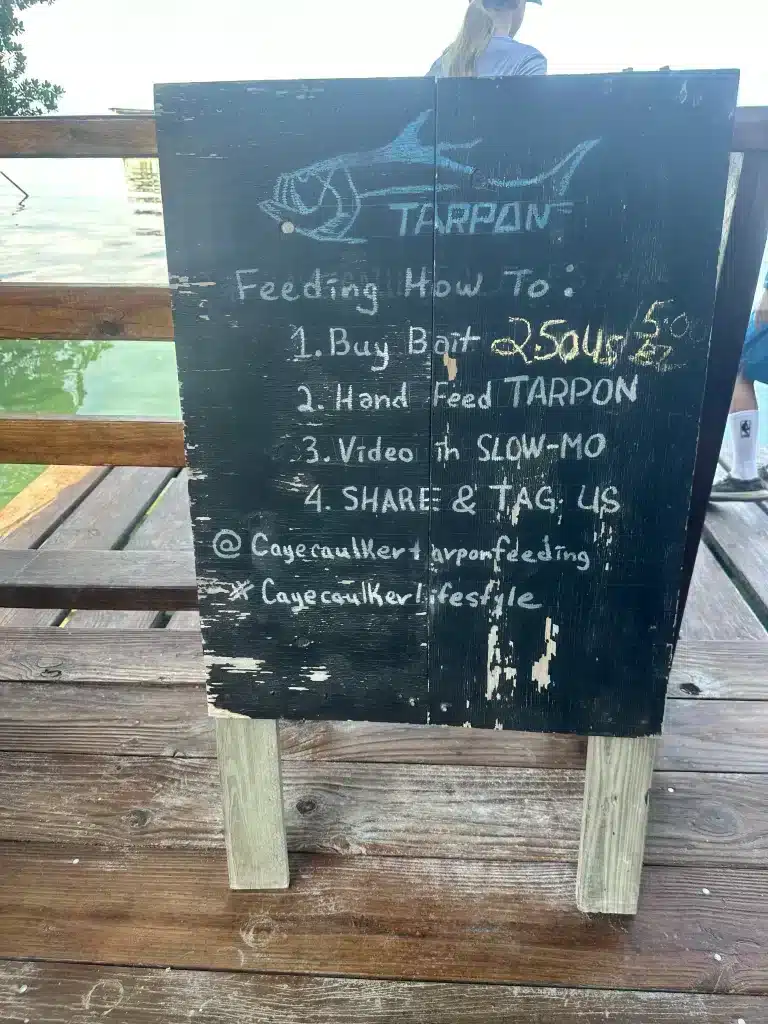 TARPON
Feeding How To:
1. Buy Bait 2.50us 5.00 BZ
2. Hand Feed TARPON
3. Video in SLOW-MO
4. SHARE & TAG US
@ Cayecaulkertarponfeeding
# Cayecaulkerlifestyle